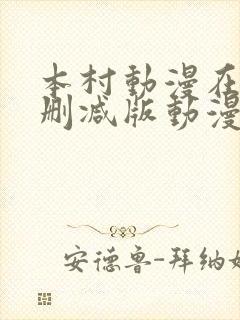 本村動漫在
删减版動漫
安德鲁-拜纳姆